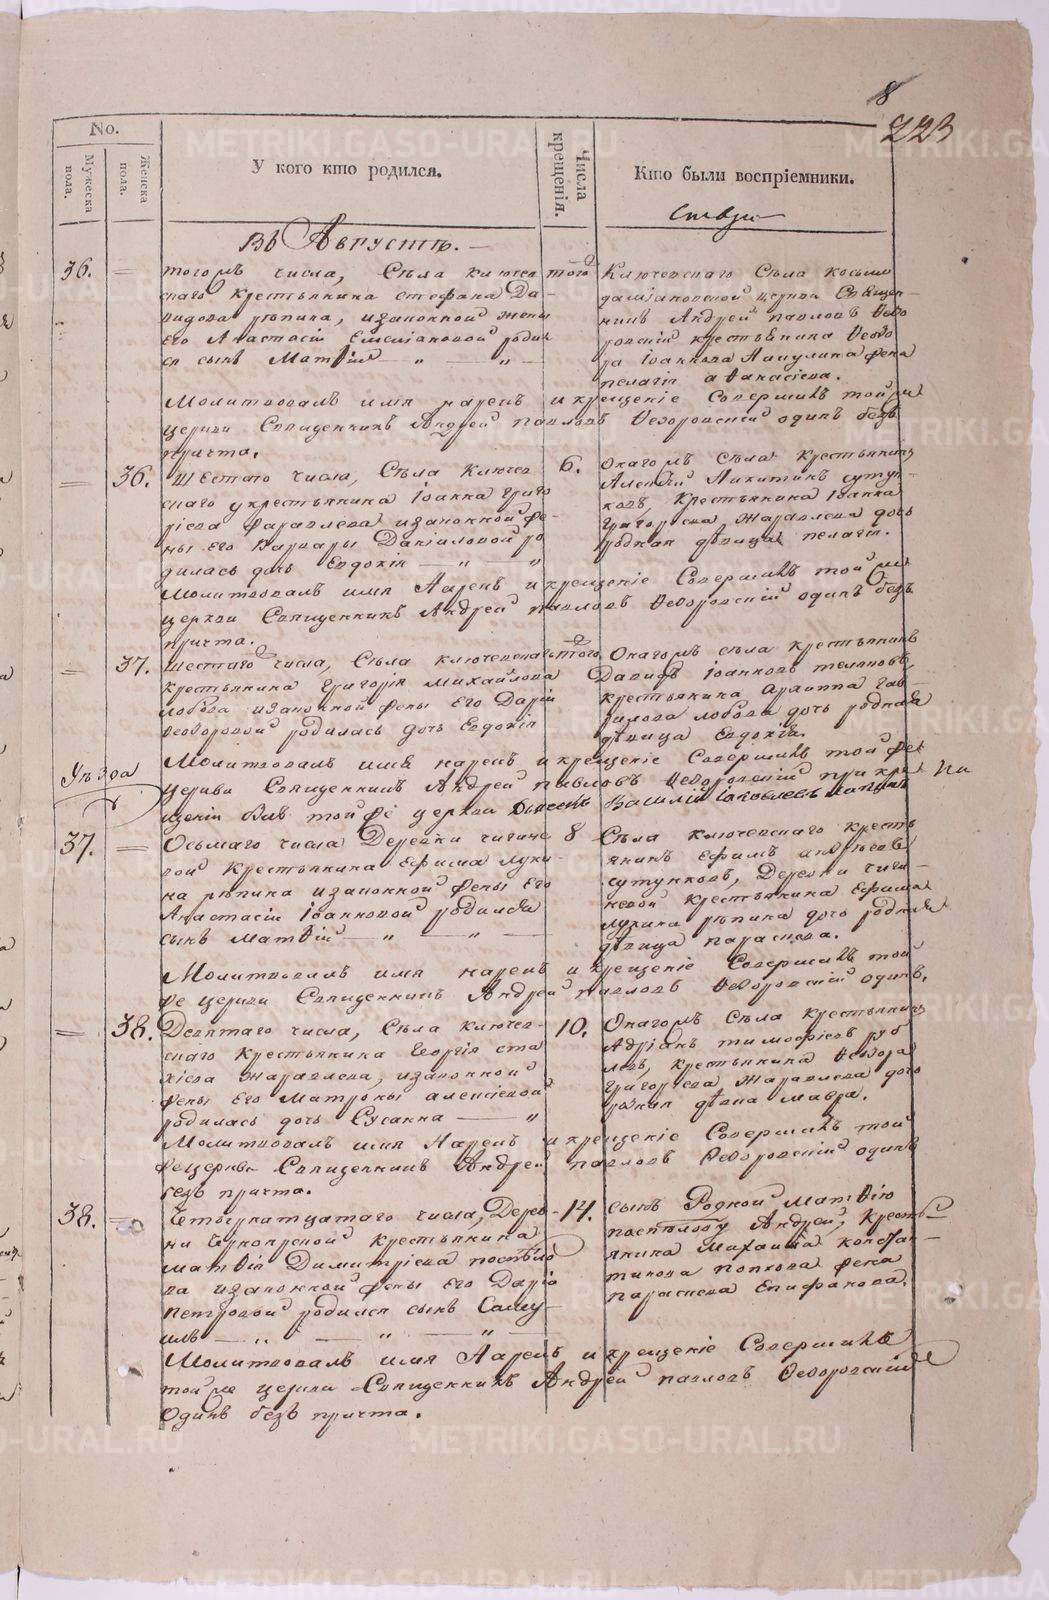 8
223
No.
Мужеска пола.
Женска пола.
У кого кто родился.
Числа крещенія.
Кто были воспріемники.
Въ Августѣ.
36. =
тогожъ числа, Села Ключев
скаго Крестьянина Стефана Да-
видова Рѣпина, изаконной жены
Его Анастасіи Емеліановой роди
ся сынъ Матвій
того
Ключевскаго Села Косьмо
даміановской церкви Священ-
никъ Андрей Павловъ Ѳедо
ровскій крестьянина Ѳедо
ра Іоаннова жена
пелагія аѳанасіева.
Молитвовалъ имя нарекъ и крещеніе Совершилъ той же
церкви Священникъ Андрей Павловъ Ѳедоровскій одинъ безъ
причта.
= 36.
Шестаго числа, Села Ключев
скаго у крестьянина Іоанна Григо
ріева Жаравлева изаконной же-
ны его Варвары Даніиловой ро
дилась дочь Евдокія
6.
Онагожъ Села Крестьянинъ
Алексій Никитинъ Сутун-
ковъ, Крестьянина Іоанна
Григоріева Жаравлева дочь
родная дѣвица пелагія.
Молитвовалъ имя Нарекъ и крещеніе Совершилъ той же
церкви Священникъ Андрей Павловъ Ѳедоровскій одинъ безъ
причта.
= 37.
Шестаго числа, Села Ключевскаго
крестьянина Григорія Михайлова
Лобова изаконной жены Его Даріи
Ѳеодоровой родилась дочь Евдокія
того
Онагожъ села крестьянинъ
Давидъ Іоанновъ
крестьянина Гав-
рилова Лобова дочь родная
дѣвица Евдокія.
Молитвовалъ имя нарекъ и крещеніе Совершилъ той же
церкви Священникъ Андрей Павловъ Ѳедоровскій при кре
щеніи былъ той же церкви Василій Іаковлевъ
Уѣзда
На
37. =
Осьмаго числа Деревни Чигине
вой Крестьянина Ефима Луки-
на Рѣпина изаконной жены Его
Анастасіи Іоанновой родился
сынъ Матвій
8
Села Ключевскаго кресть
янинъ Ефимъ Андреевъ
Сутунковъ, Деревни Чиги-
невой крестьянина Ефима
Лукина Рѣпина дочь родная
дѣвица параскева.
Молитвовалъ имя нарекъ и крещеніе Совершилъ той
же церкви Священникъ Андрей Павловъ Ѳедоровскій одинъ.
= 38.
Девятаго числа, Села Ключев-
скаго Крестьянина Георгія Ста
хіева Жаравлева, изаконной
жены Его Матроны Алексіевой
родилась дочь Сусанна
10.
Онагожъ Села крестьянинъ
Адріанъ Тимофіевъ
Крестьянина Ѳедора
Григорьева Жаравлева дочь
родная дѣвица Мавра.
Молитвовалъ имя Нарекъ и крещеніе Совершилъ той
же церкви Священникъ Андрей Павловъ Ѳедоровскій одинъ
безъ причта.
38. =
Четырнатцатаго числа, Дерев-
ни Крестьянина
Матвія Димитріева
изаконной жены Его Даріи
Петровой родился сынъ Саму-
илъ
14.
сынъ Родной Матвію
Андрей, Кресть-
янина Михаила Констан-
тинова Попкова жена
параскева Епифанова.
Молитвовалъ имя Нарекъ и крещеніе Совершилъ
той же церкви Священникъ Андрей Павловъ Ѳедоровскій
Одинъ безъ причта.
METRIKI.GASO-URAL.RU